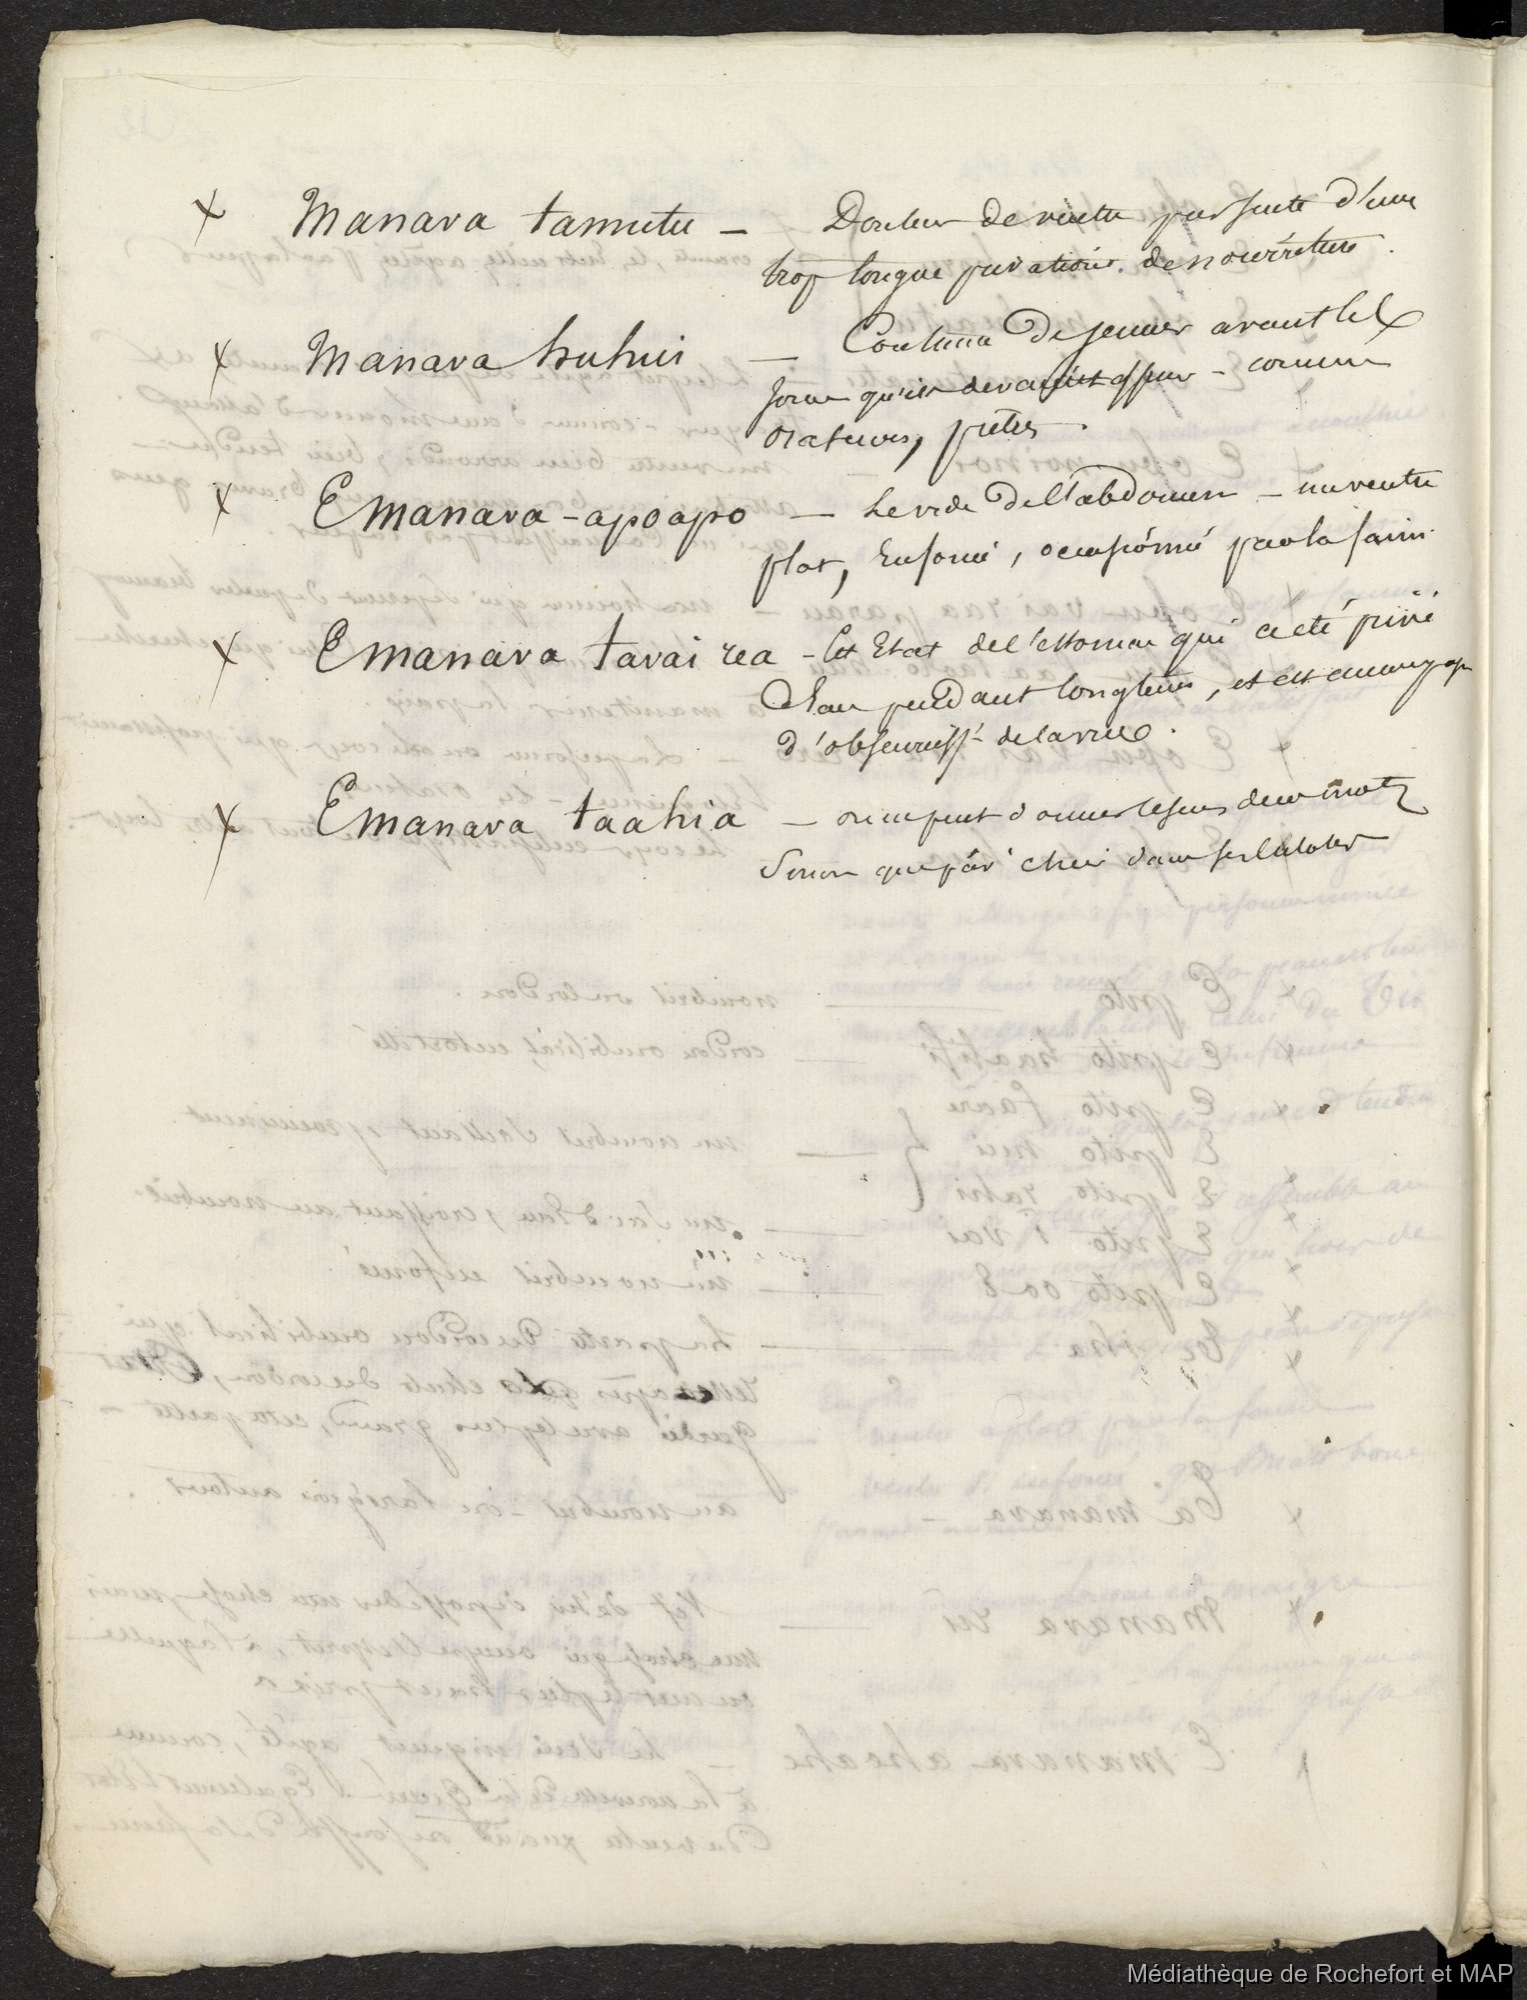 x Manava tamutu — Douleur de ventre par suite d'une
trop longue privation de nourriture.
x Manava huhui — Coutume de jeuner avant les
forme qu'ils devaient — comme
orateurs, prêtres.
x E Manava-apoapo — Le vide de l'abdomen — un ventre
plat, enfoncé, occasionné par la faim.
x E manava tavai rea — Cet Etat de l'estomac qui a été privé
d'eau pendant longtems, et est accompagné
d'obscurciss.t de la vue.
x E manava taahia — on ne peut donner le sens de ce mot
Sinon que par chier dans ses culottes
Médiathèque de Rochefort et MAP